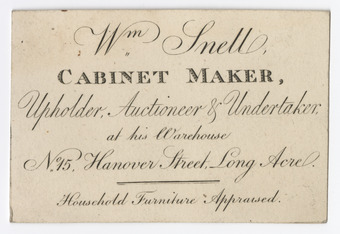 Wm Snell,
CABINET MAKER,
Upholder, Auctioneer & Undertaker,
at his Warehouse
No. 15, Hanover Street, Long Acre.
Household Furniture Appraised.